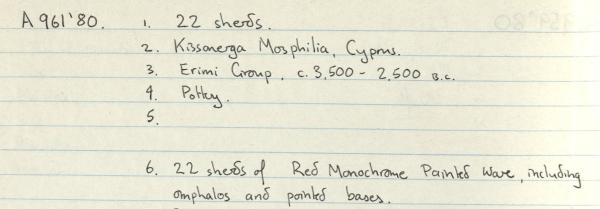 A 961'80. 1. 22 sherds.
2. Kissonerga Mosphilia, Cyprus.
3. Erimi Group, c. 3,500 - 2,500 B.C.
4. Pottery.
5.
6. 22 sherds of Red Monochrome Painted Ware, including
omphalos and pointed bases.